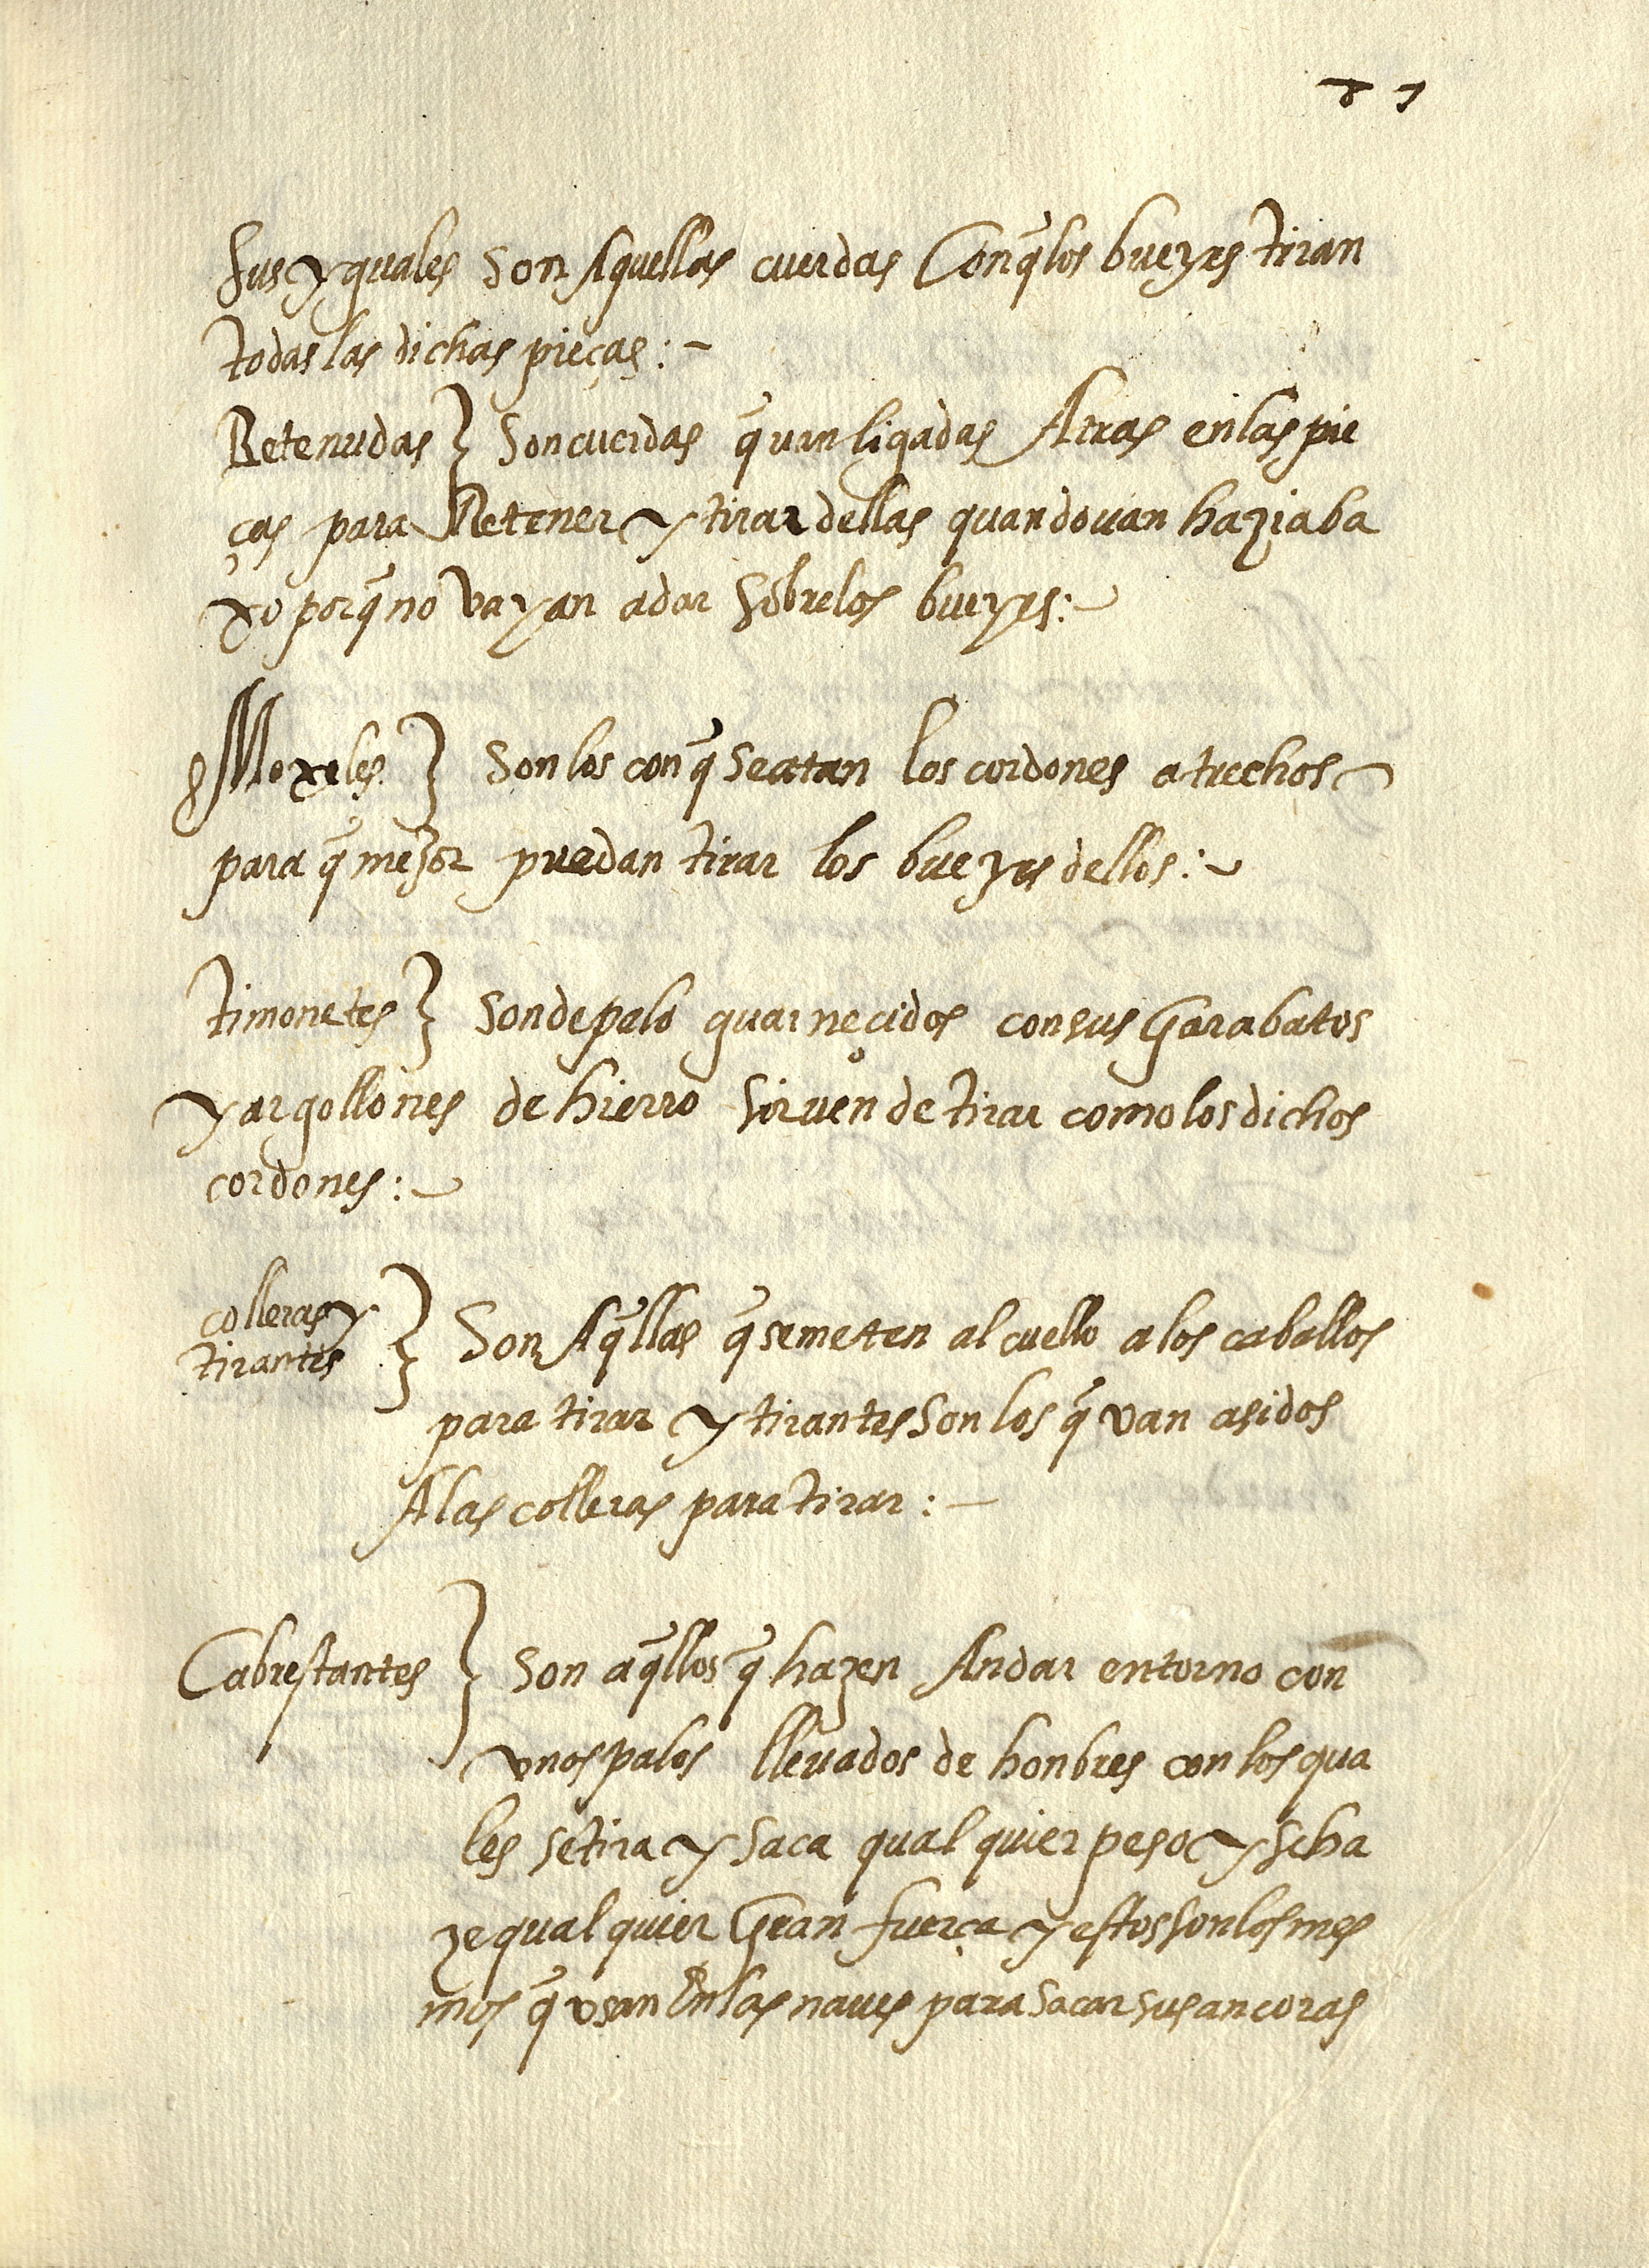 sus yguales son Aquellas cuerdas Conq̃ los bueyes tiran
todas las dichas pieças:-
Retenudas} Son cuerdas q̃ van ligadas Atras en las pie
ças para Retener y tirar dellas quando uan hazia ba
xo porq̃ no vayan a dar sobre los bueyes:-
Moxeles} Son los con q̃ se atan los cordones a trechos
para q̃ mejor puedan tirar los bueyes dellos:-
timonetes} Son de palo guarneçidos con sus Garabatos
y argollones de hierro siruen de tirar como los dichos
cordones:-
colleras y
tirantes } Son Aq̃llas q̃ se meten al cuello a los caballos
para tirar y tirantes son los q̃ van asidos
A las colleras para tirar:-
Cabrestantes} Son aq̃llos q̃ hazen Andar entorno con
vnos palos lleuados de honbres con los qua
les se tira y saca qual quier peso y se ha
ze qual quier Gran fuerça y estos son los mes
mos q̃ vsan En las naues para sacar sus ancoras